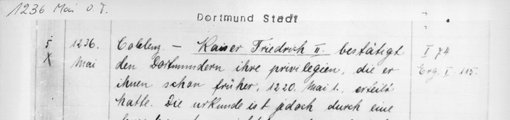 1236 Mai O.T.
Dortmund Stadt
5 1236. Coblenz – Kaiser Friedrich II. bestätigt I 74
X Mai den Dortmundern ihre privilegien, die er Erg. I 115.
ihnen schon früher, 1220. Mai 1. erteilt
hatte. Die urkunde ist jedoch durch eine